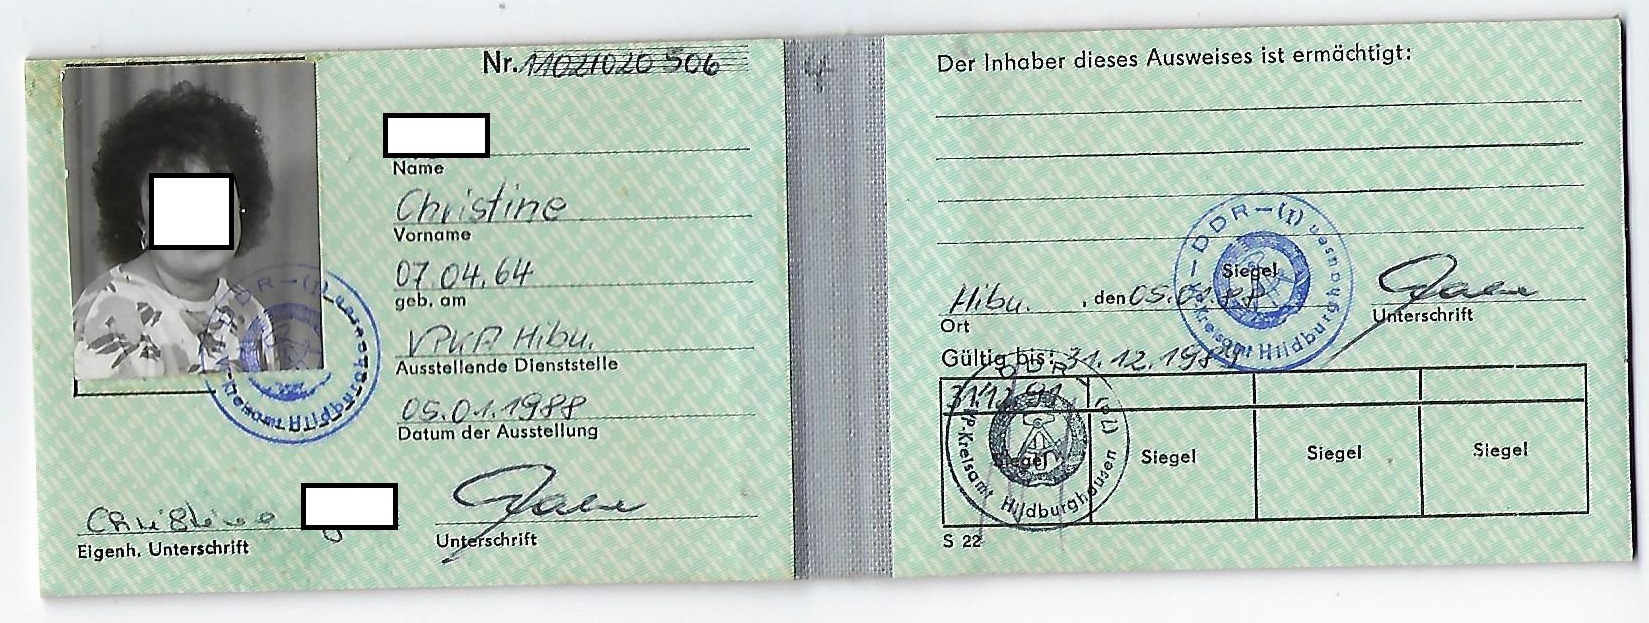 Nr. 11021020 506
Name
Christine
Vorname
07.04.64
geb. am
VPKA Hibu.
Ausstellende Dienststelle
05.01.1988
Datum der Ausstellung
Christine
Eigenh. Unterschrift
Unterschrift
Der Inhaber dieses Ausweises ist ermächtigt:
DDR-(1)
Kreisamt Hildburghausen
Siegel
Hibu. , den 05.01.88
Ort
Unterschrift
Gültig bis: 31.12.1989
31.12.91
DDR
VP-Kreisamt Hildburghausen
Siegel Siegel Siegel Siegel
S 22